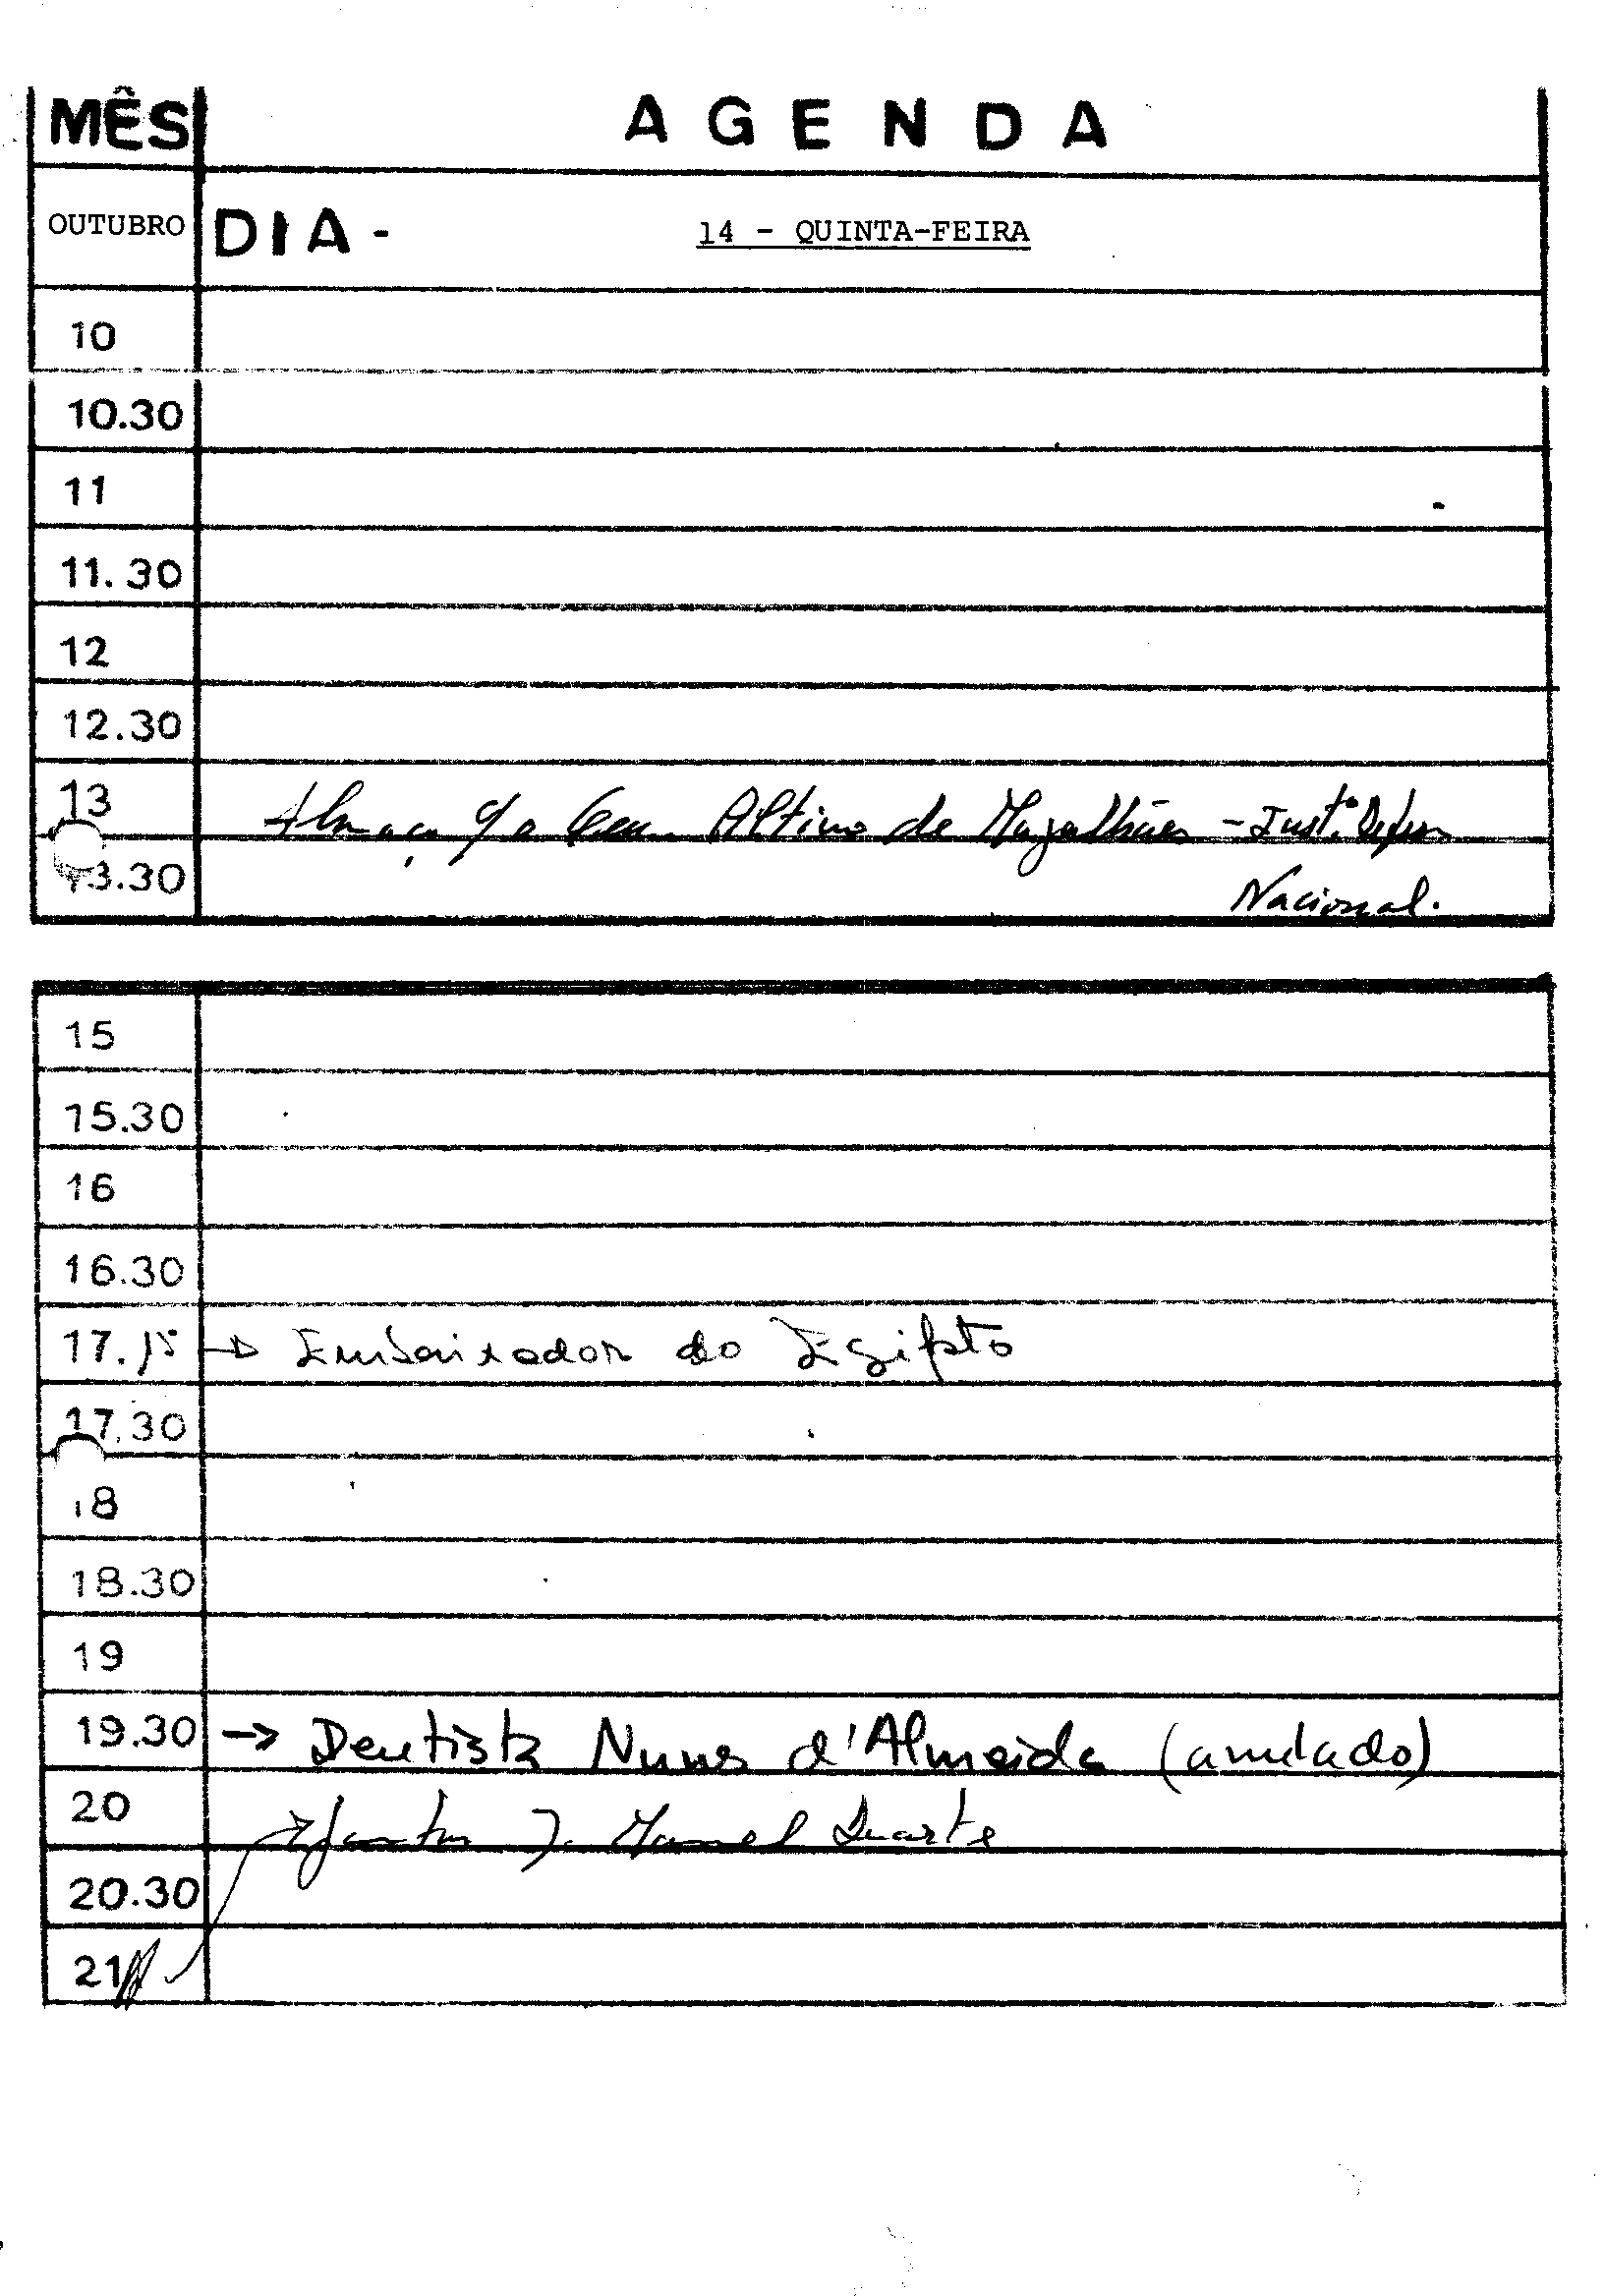 MÊS AGENDA
OUTUBRO DIA - 14 - QUINTA-FEIRA
10
10.30
11
11.30
12
12.30
13 Almoço c/ o Gen. Altino de Magalhães - Inst.º Defesa
13.30 Nacional.
15
15.30
16
16.30
17.15 → Embaixador do Egipto
17.30
18
18.30
19
19.30 → Dentista Nunes d'Almeida (anulado)
20 → Jantar J. Manuel Duarte
20.30
21